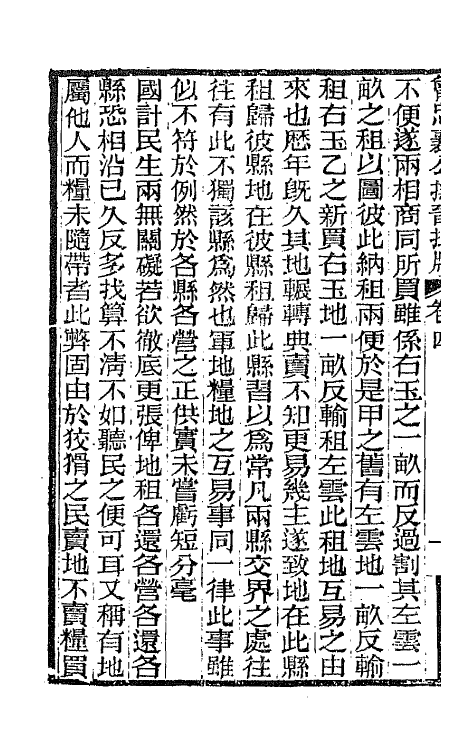 曾忠襄公撫晉批牘 卷四
不便遂兩相商同所買雖係右玉之一畝而反過割其左雲一
畝之租以圖彼此納租兩便於是甲之舊有左雲地一畝反輸
租右玉乙之新買右玉地一畝反輸租左雲此租地互易之由
來也歷年旣久其地輾轉典賣不知更易幾主遂致地在此縣
租歸彼縣地在彼縣租歸此縣習以爲常凡兩縣交界之處往
往有此不獨該縣爲然也軍地糧地之互易事同一律此事雖
似不符於例然於各縣各營之正供實未嘗虧短分毫
國計民生兩無關礙若欲徹底更張俾地租各還各營各還各
縣恐相沿已久反多找算不淸不如聽民之便可耳又稱有地
屬他人而糧未隨帶者此弊固由於狡猾之民賣地不賣糧買